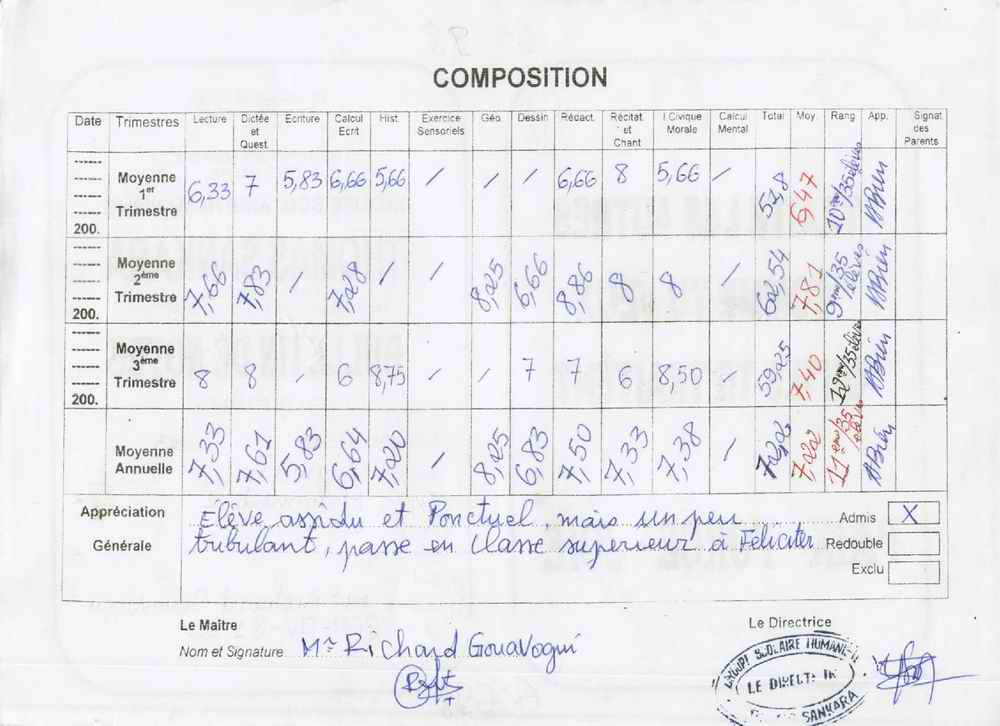 COMPOSITION
Date Trimestres Lecture Dictée et Quest Ecriture Calcul Ecrit Hist. Exercice Sensoriels Géo Dessin Rédact. Récitat et Chant I.Civique Morale Calcul Mental Total Moy. Rang App. Signat des Parents
200. Moyenne 1er Trimestre 6,33 7 5,83 6,66 5,66 / / / 6,66 8 5,66 / 52,8 6,47 10ème/35élèves A Bien
200. Moyenne 2ème Trimestre 7,66 7,83 / 7,28 / / 8,25 6,66 8,86 8 8 / 62,54 7,81 9ème/35 élèves A Bien
200. Moyenne 3ème Trimestre 8 8 / 6 8,75 / / 7 7 6 8,50 / 59,25 7,40 /35élèves A Bien
Moyenne Annuelle 7,33 7,61 5,83 6,64 7,20 / 8,25 6,83 7,50 7,33 7,38 / 7,22 11ème/35 élèves A Bien
Appréciation Générale
Elève assidu et Ponctuel, mais un peu
tribulant, passe en classe superieur à Feliciter
Admis X
Redouble
Exclu
Le Maître
Nom et Signature Mr Richard Gouavogui
Le Directrice
GROUPE SCOLAIRE
LE DIRECT
SANKARA